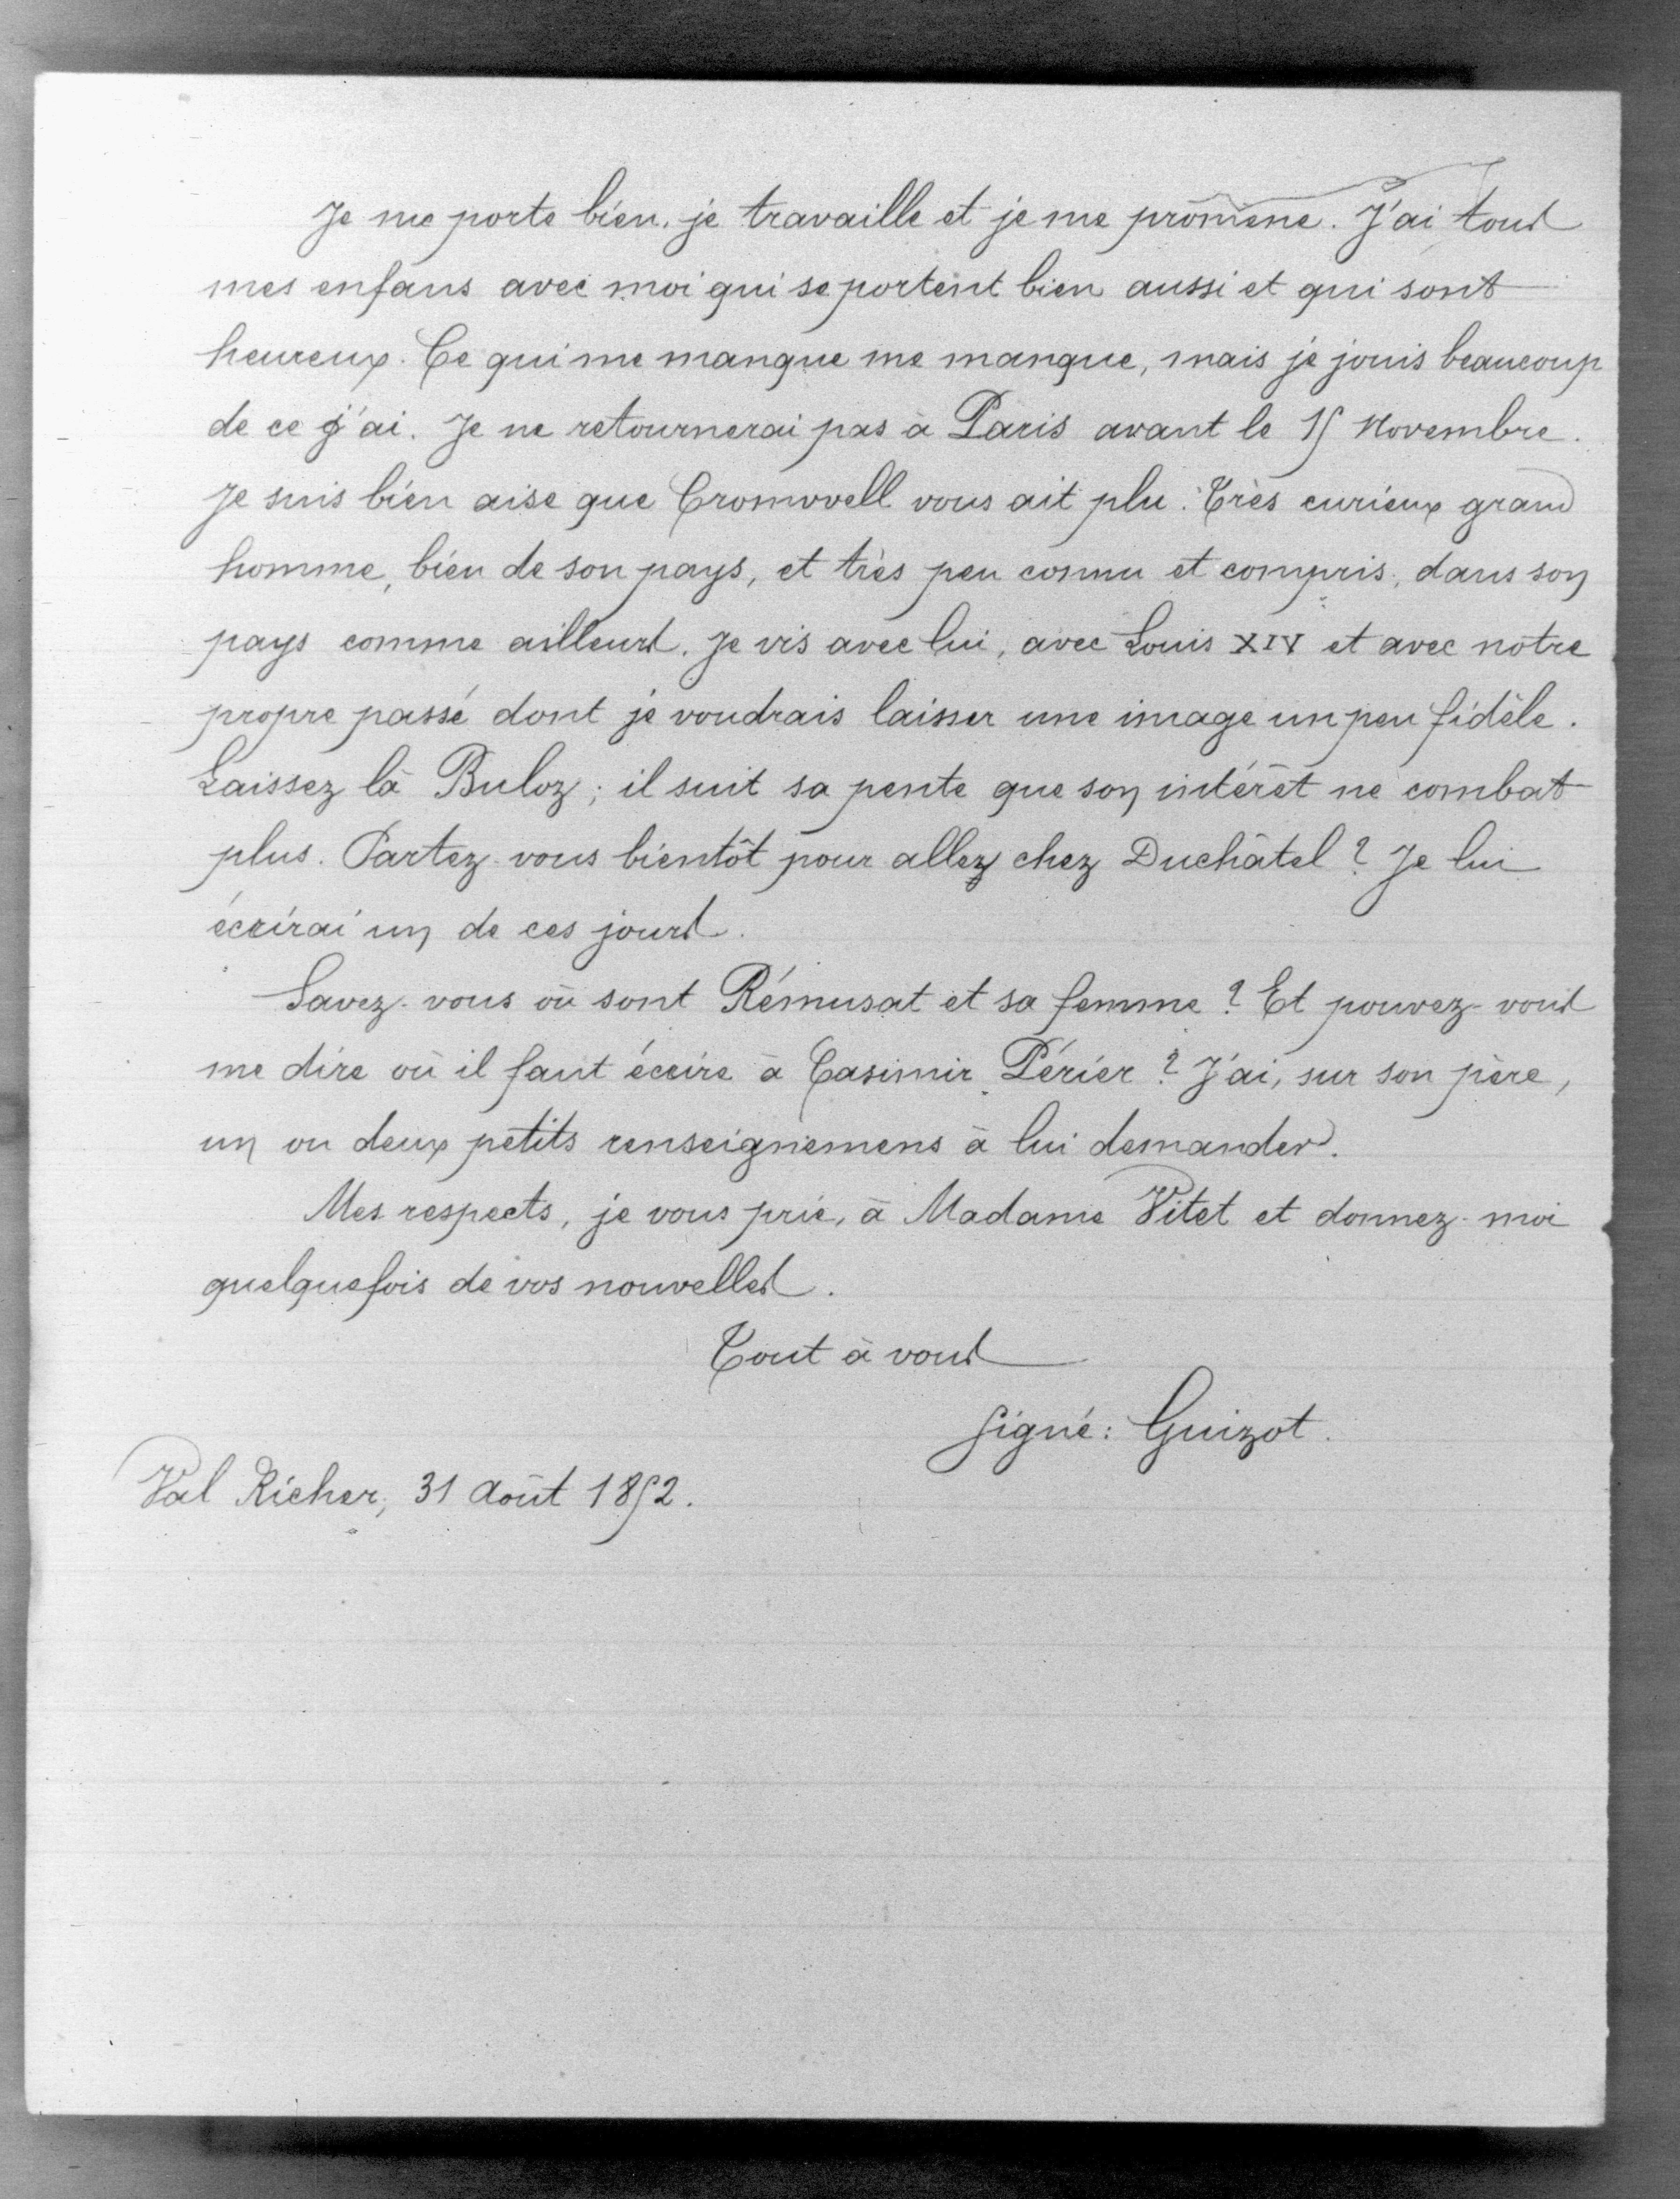 Je me porte bien, je travaille et je me promène. J'ai tous
mes enfans avec moi qui se portent bien aussi et qui sont
heureux. Ce qui me manque me manque, mais je jouis beaucoup
de ce j'ai. Je ne retournerai pas à Paris avant le 15 Novembre.
Je suis bien aise que Cromwell vous ait plu. Très curieux grand
homme, bien de son pays, et très peu connu et compris, dans son
pays comme ailleurs. Je vis avec lui, avec Louis XIV et avec notre
propre passé dont je voudrais laisser une image un peu fidèle.
Laissez là Buloz ; il suit sa pente que son intérêt ne combat
plus. Partez-vous bientôt pour allez chez Duchâtel ? Je lui
écrirai un de ces jours.
Savez-vous où sont Rémusat et sa femme ? Et pouvez-vous
me dire où il faut écrire à Casimir Périer ? J'ai, sur son père,
un ou deux petits renseignemens à lui demander.
Mes respects, je vous prie, à Madame Vitet et donnez-moi
quelquefois de vos nouvelles.
Tout à vous
Signé : Guizot.
Val Richer, 31 Août 1852.